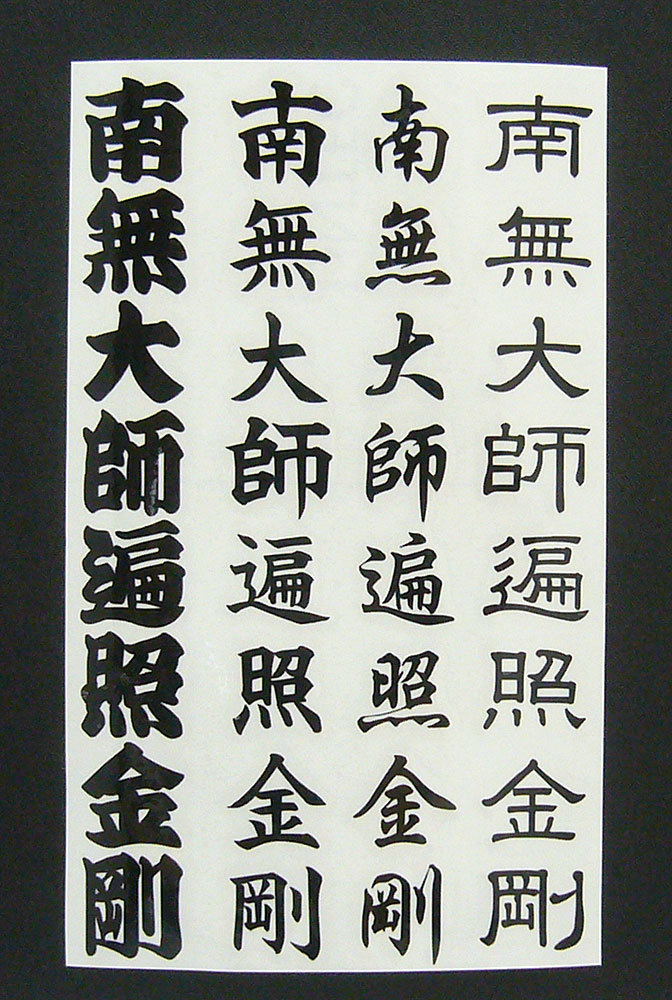 南無大師遍照金剛
南無大師遍照金剛
南無大師遍照金剛
南無大師遍照金剛